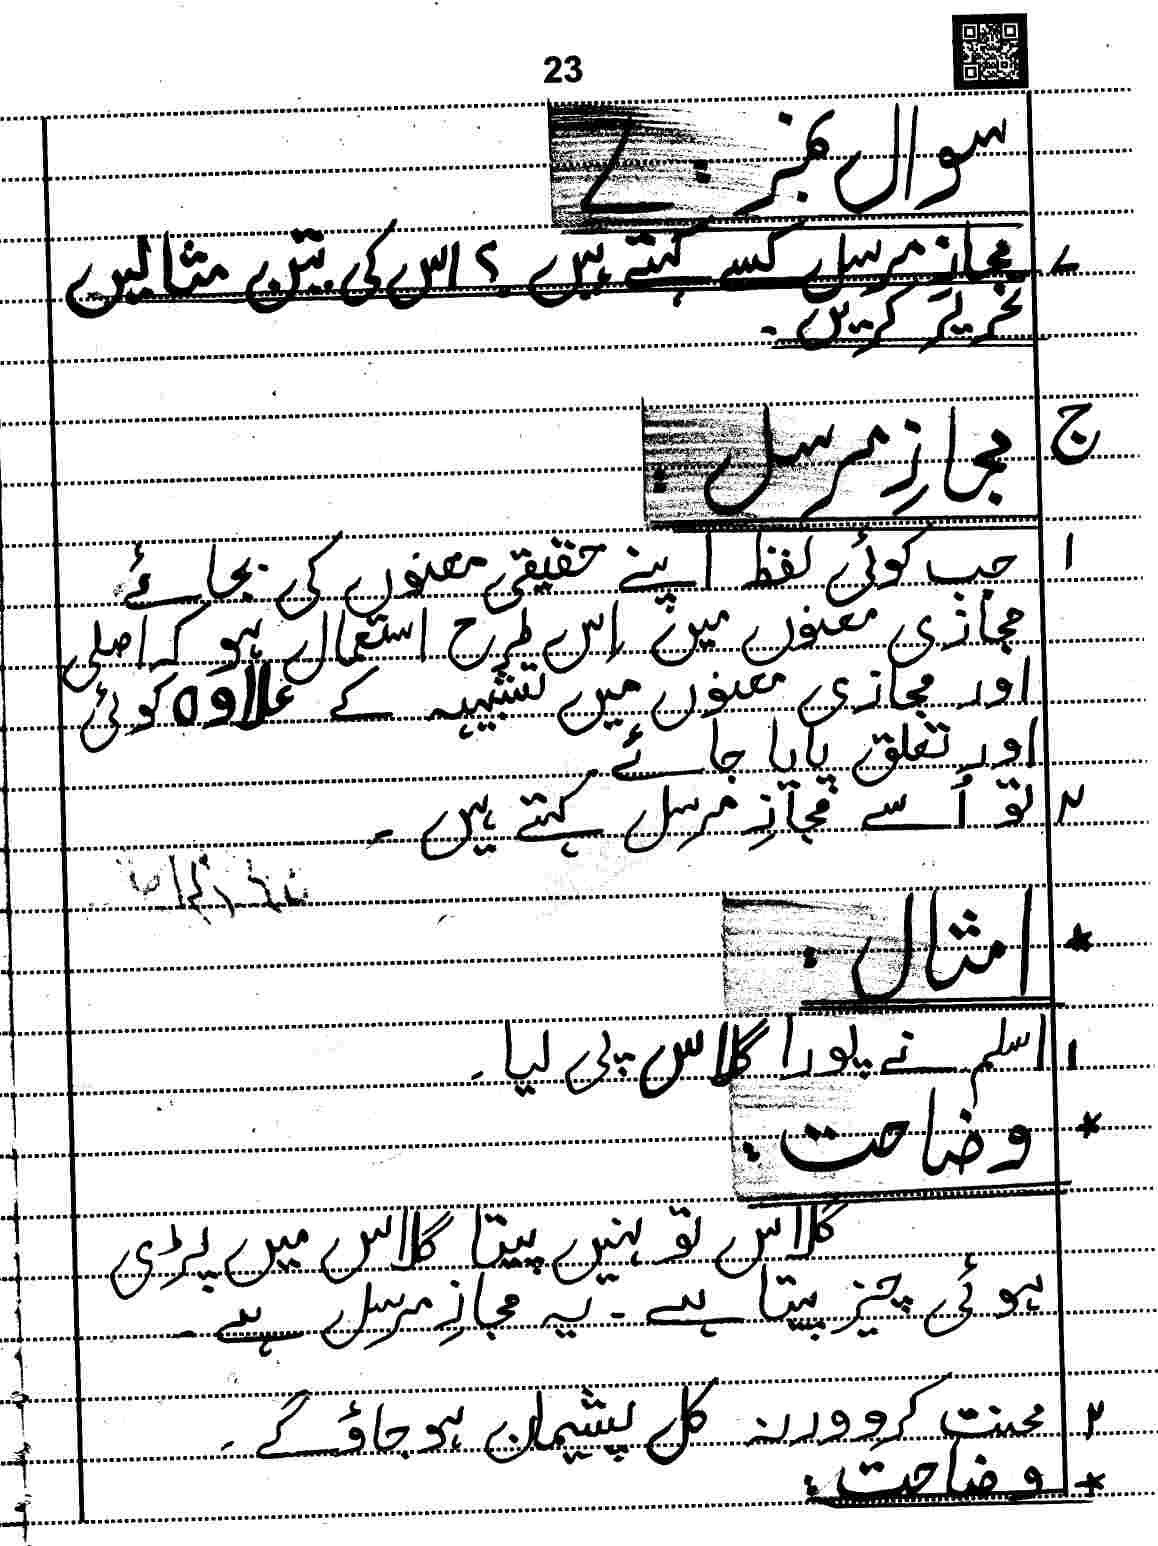 23
سوال نمبر : 7
س مجاز مرسل کسے کہتے ہیں ؟ اس کی تین مثالیں
تحریر کریں ۔
ج مجازِ مرسل :
۱ جب کوئی لفظ اپنے حقیقی معنوں کی بجائے
مجازی معنوں میں اس طرح استعمال ہو کہ اصلی
اور مجازی معنوں میں تشبیہ کے علاوہ کوئی
اور تعلق پایا جائے
۲ تو اُسے مجازِ مرسل کہتے ہیں ۔
* امثال :
۱ اسلم نے پورا گلاس پی لیا ۔
* وضاحت :
گلاس تو نہیں پیتا گلاس میں پڑی
ہوئی چیز پیتا ہے ۔ یہ مجازِ مرسل ہے ۔
۲ محنت کرو ورنہ کل پشیمان ہو جاؤ گے ۔
* وضاحت :